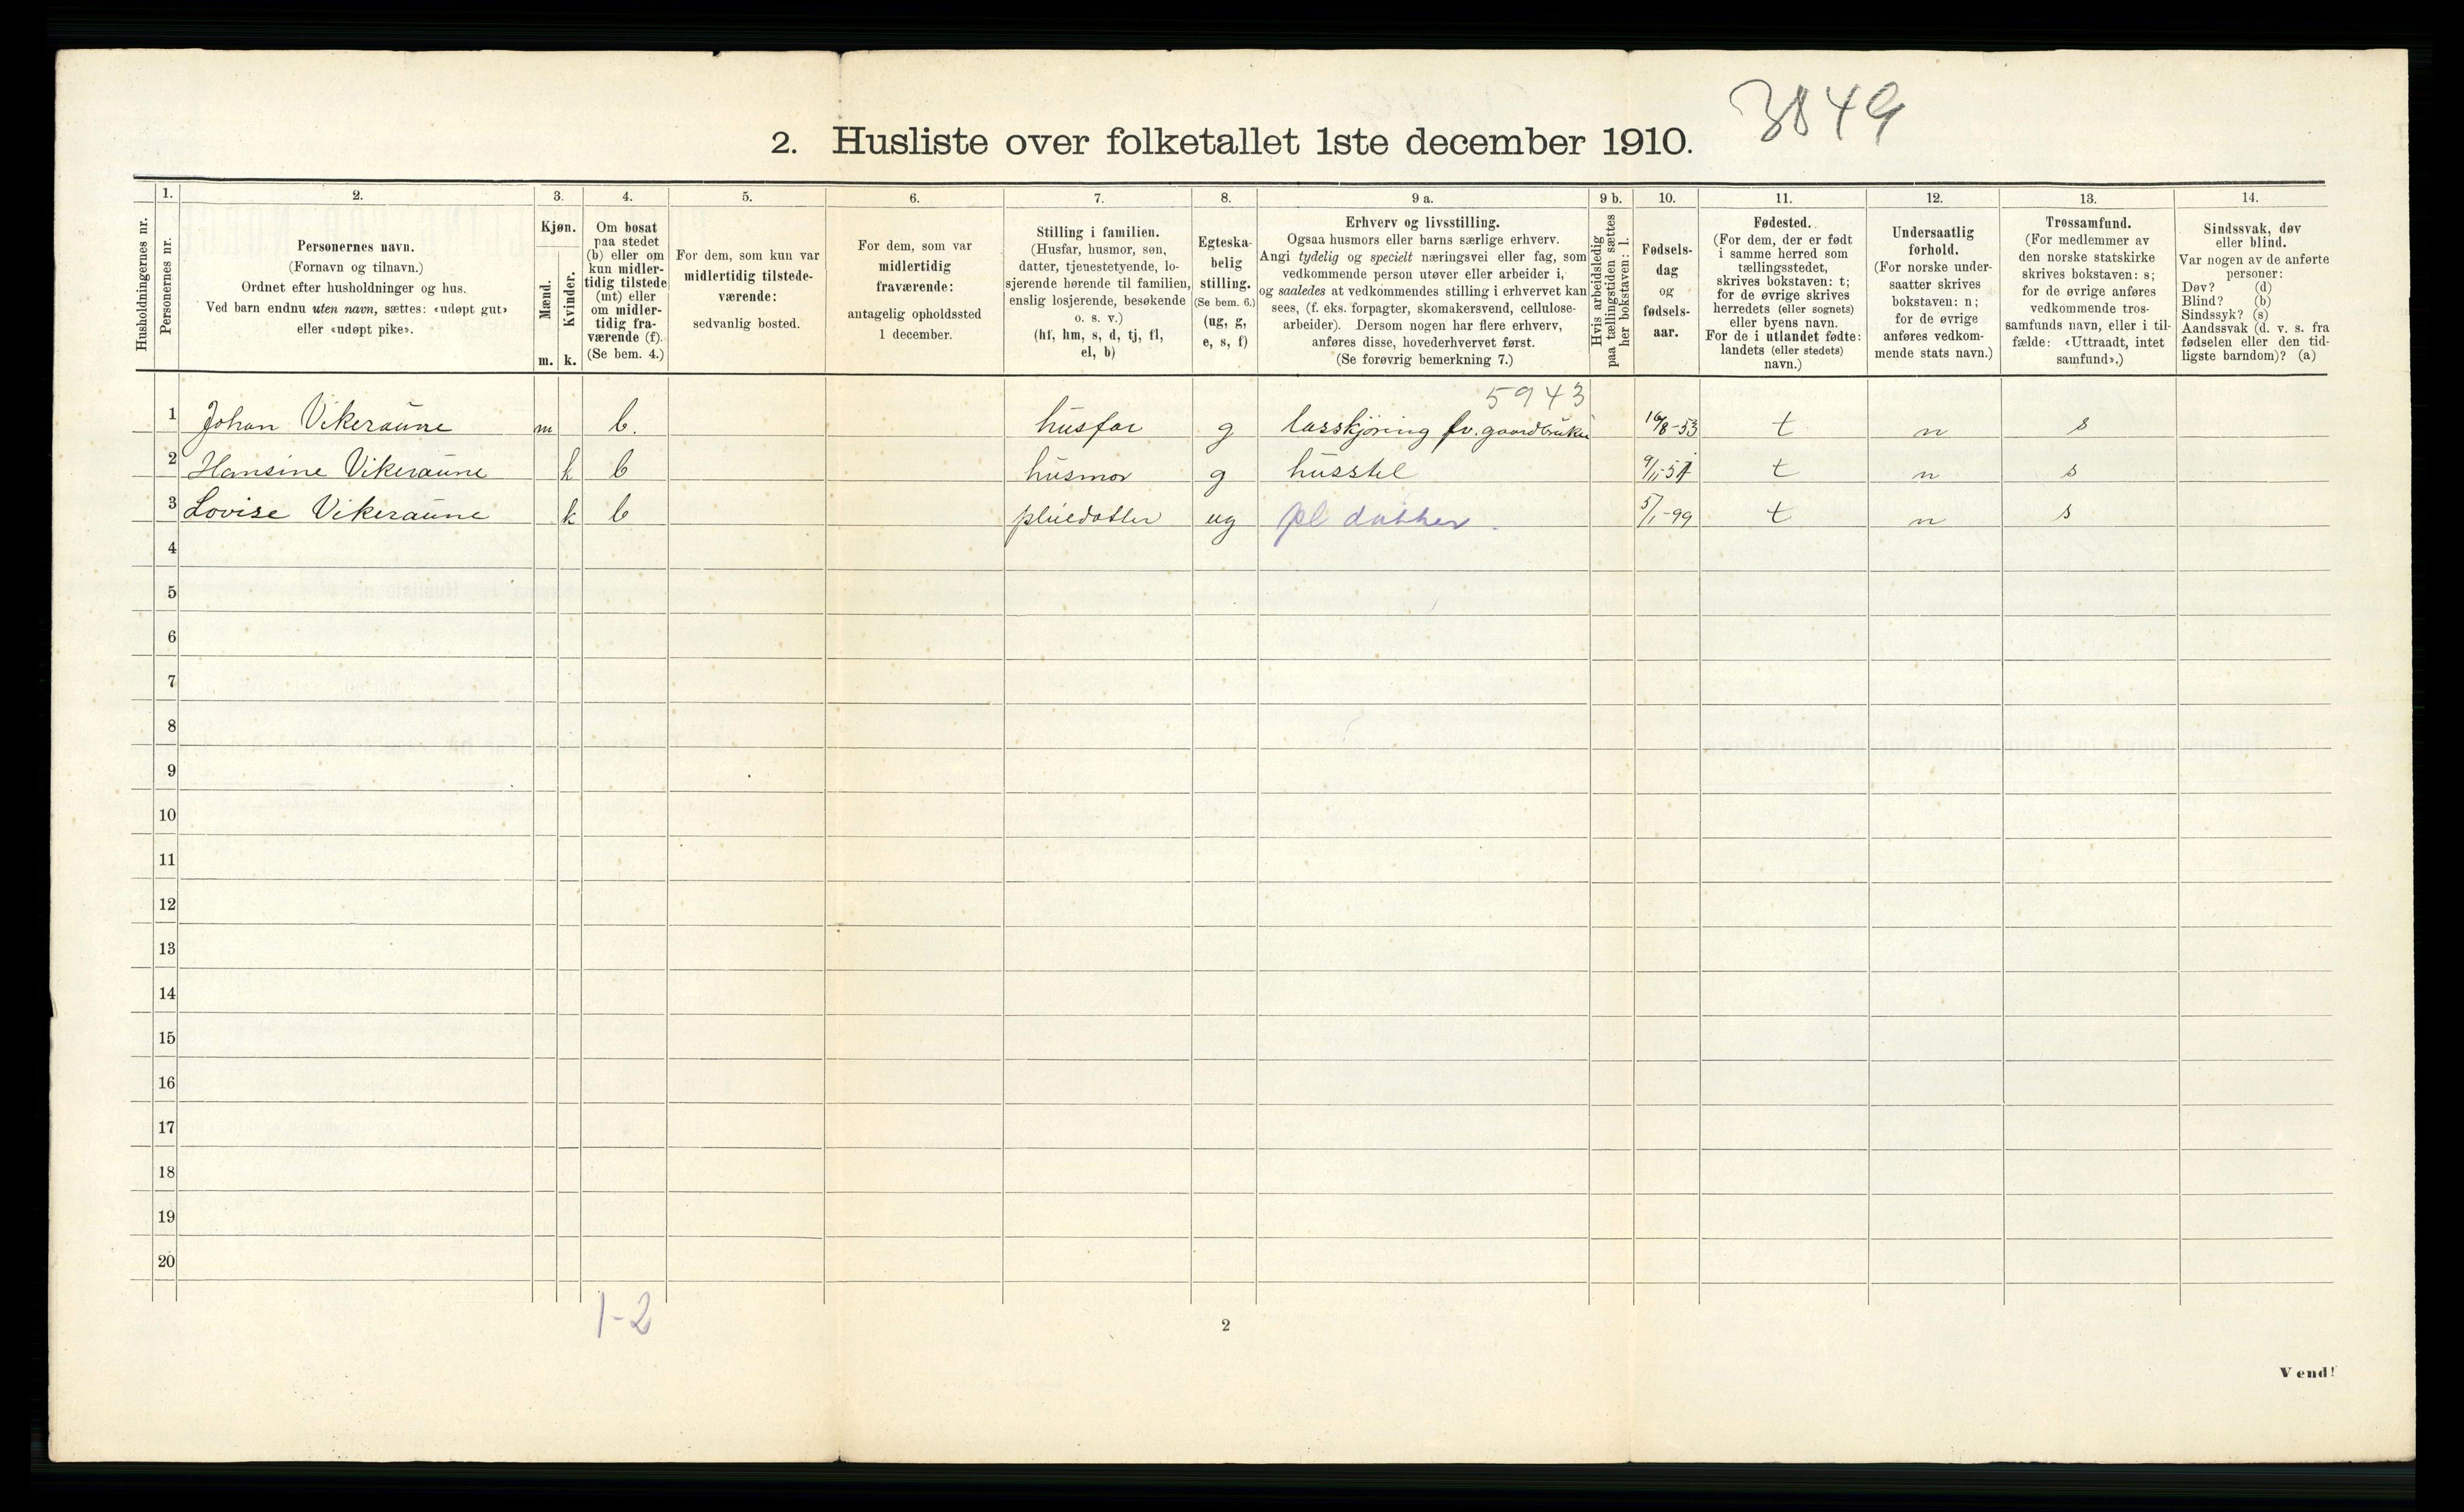 3849
2. Husliste over folketallet 1ste december 1910.
Husholdningernes nr.
1.
Personernes nr.
2.
Personernes navn.
(Fornavn og tilnavn.)
Ordnet efter husholdninger og hus.
Ved barn endnu uten navn, sættes: «udøpt gut»
eller «udøpt pike».
3.
Kjøn.
Mænd.
Kvinder.
m. k.
4.
Om bosat
paa stedet
(b) eller om
kun midler-
tidig tilstede
(mt) eller
om midler-
tidig fra-
værende (f).
(Se bem. 4.)
5.
For dem, som kun var
midlertidig tilstede-
værende:
sedvanlig bosted.
6.
For dem, som var
midlertidig
fraværende:
antagelig opholdssted
1 december.
7.
Stilling i familien.
(Husfar, husmor, søn,
datter, tjenestetyende, lo-
sjerende hørende til familien,
enslig losjerende, besøkende
o. s. v.)
(hf, hm, s, d, tj, fl,
el, b)
8.
Egteska-
belig
stilling.
(Se bem. 6.)
(ug, g,
e, s, f)
9 a.
Erhverv og livsstilling.
Ogsaa husmors eller barns særlige erhverv.
Angi tydelig og specielt næringsvei eller fag, som
vedkommende person utøver eller arbeider i,
og saaledes at vedkommendes stilling i erhvervet kan
sees, (f. eks. forpagter, skomakersvend, cellulose-
arbeider). Dersom nogen har flere erhverv,
anføres disse, hovederhvervet først.
(Se forøvrig bemerkning 7.)
9 b.
Hvis arbeidsledig
paa tællingstiden sættes
her bokstaven: l.
10.
Fødsels-
dag
og
fødsels-
aar.
11.
Fødested.
(For dem, der er født
i samme herred som
tællingsstedet,
skrives bokstaven: t;
for de øvrige skrives
herredets (eller sognets)
eller byens navn.
For de i utlandet fødte:
landets (eller stedets)
navn.)
12.
Undersaatlig
forhold.
(For norske under-
saatter skrives
bokstaven: n;
for de øvrige
anføres vedkom-
mende stats navn.)
13.
Trossamfund.
(For medlemmer av
den norske statskirke
skrives bokstaven: s;
for de øvrige anføres
vedkommende tros-
samfunds navn, eller i til-
fælde: «Uttraadt, intet
samfund».)
14.
Sindssvak, døv
eller blind.
Var nogen av de anførte
personer:
Døv? (d)
Blind? (b)
Sindssyk? (s)
Aandssvak (d. v. s. fra
fødselen eller den tid-
ligste barndom)? (a)
5943
1 Johan Vikeraune m b. husfar g lasskjøring fv. gaardbruker 16/8-53 t n s
2 Hansine Vikeraune k b husmor g husstel 9/11-51 t n s
3 Lovise Vikeraune k b pleiedatter ug pl datter. 5/1-99 t n s
4
5
6
7
8
9
10
11
12
13
14
15
16
17
18
19
20
1-2
2
Vend!